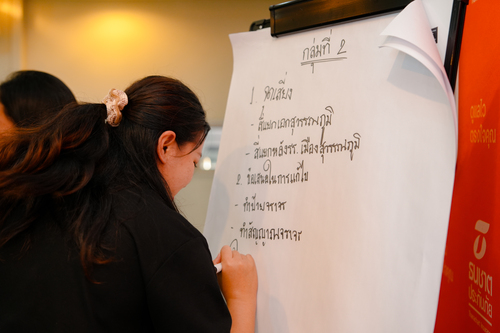 กลุ่มที่ 2
1. จุดเสี่ยง
- สี่แยกเอกสุวรรณภูมิ
- สี่แยกหลังรร. เมืองสุวรรณภูมิ
2. ข้อเสนอในการแก้ไข
- ทำป้ายจราจร
- ทำสัญญาณจราจร